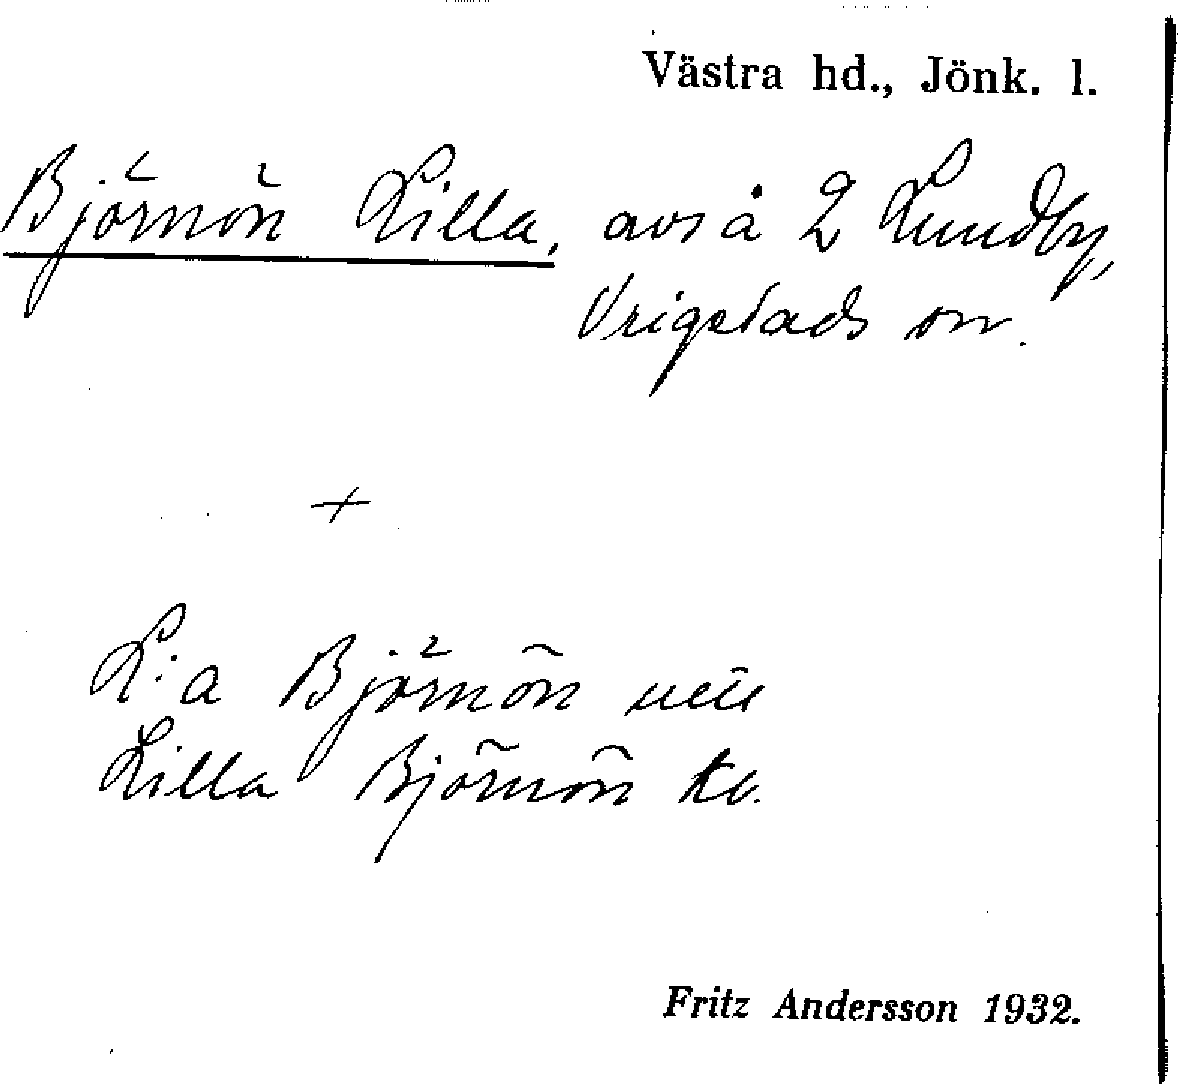 Västra hd., Jönk. l.
Björnön Lilla, avs å 2 Lundby,
Vrigstads sn.
+
L:a Björnön
Lilla Björnön kv.
Fritz Andersson 1932.